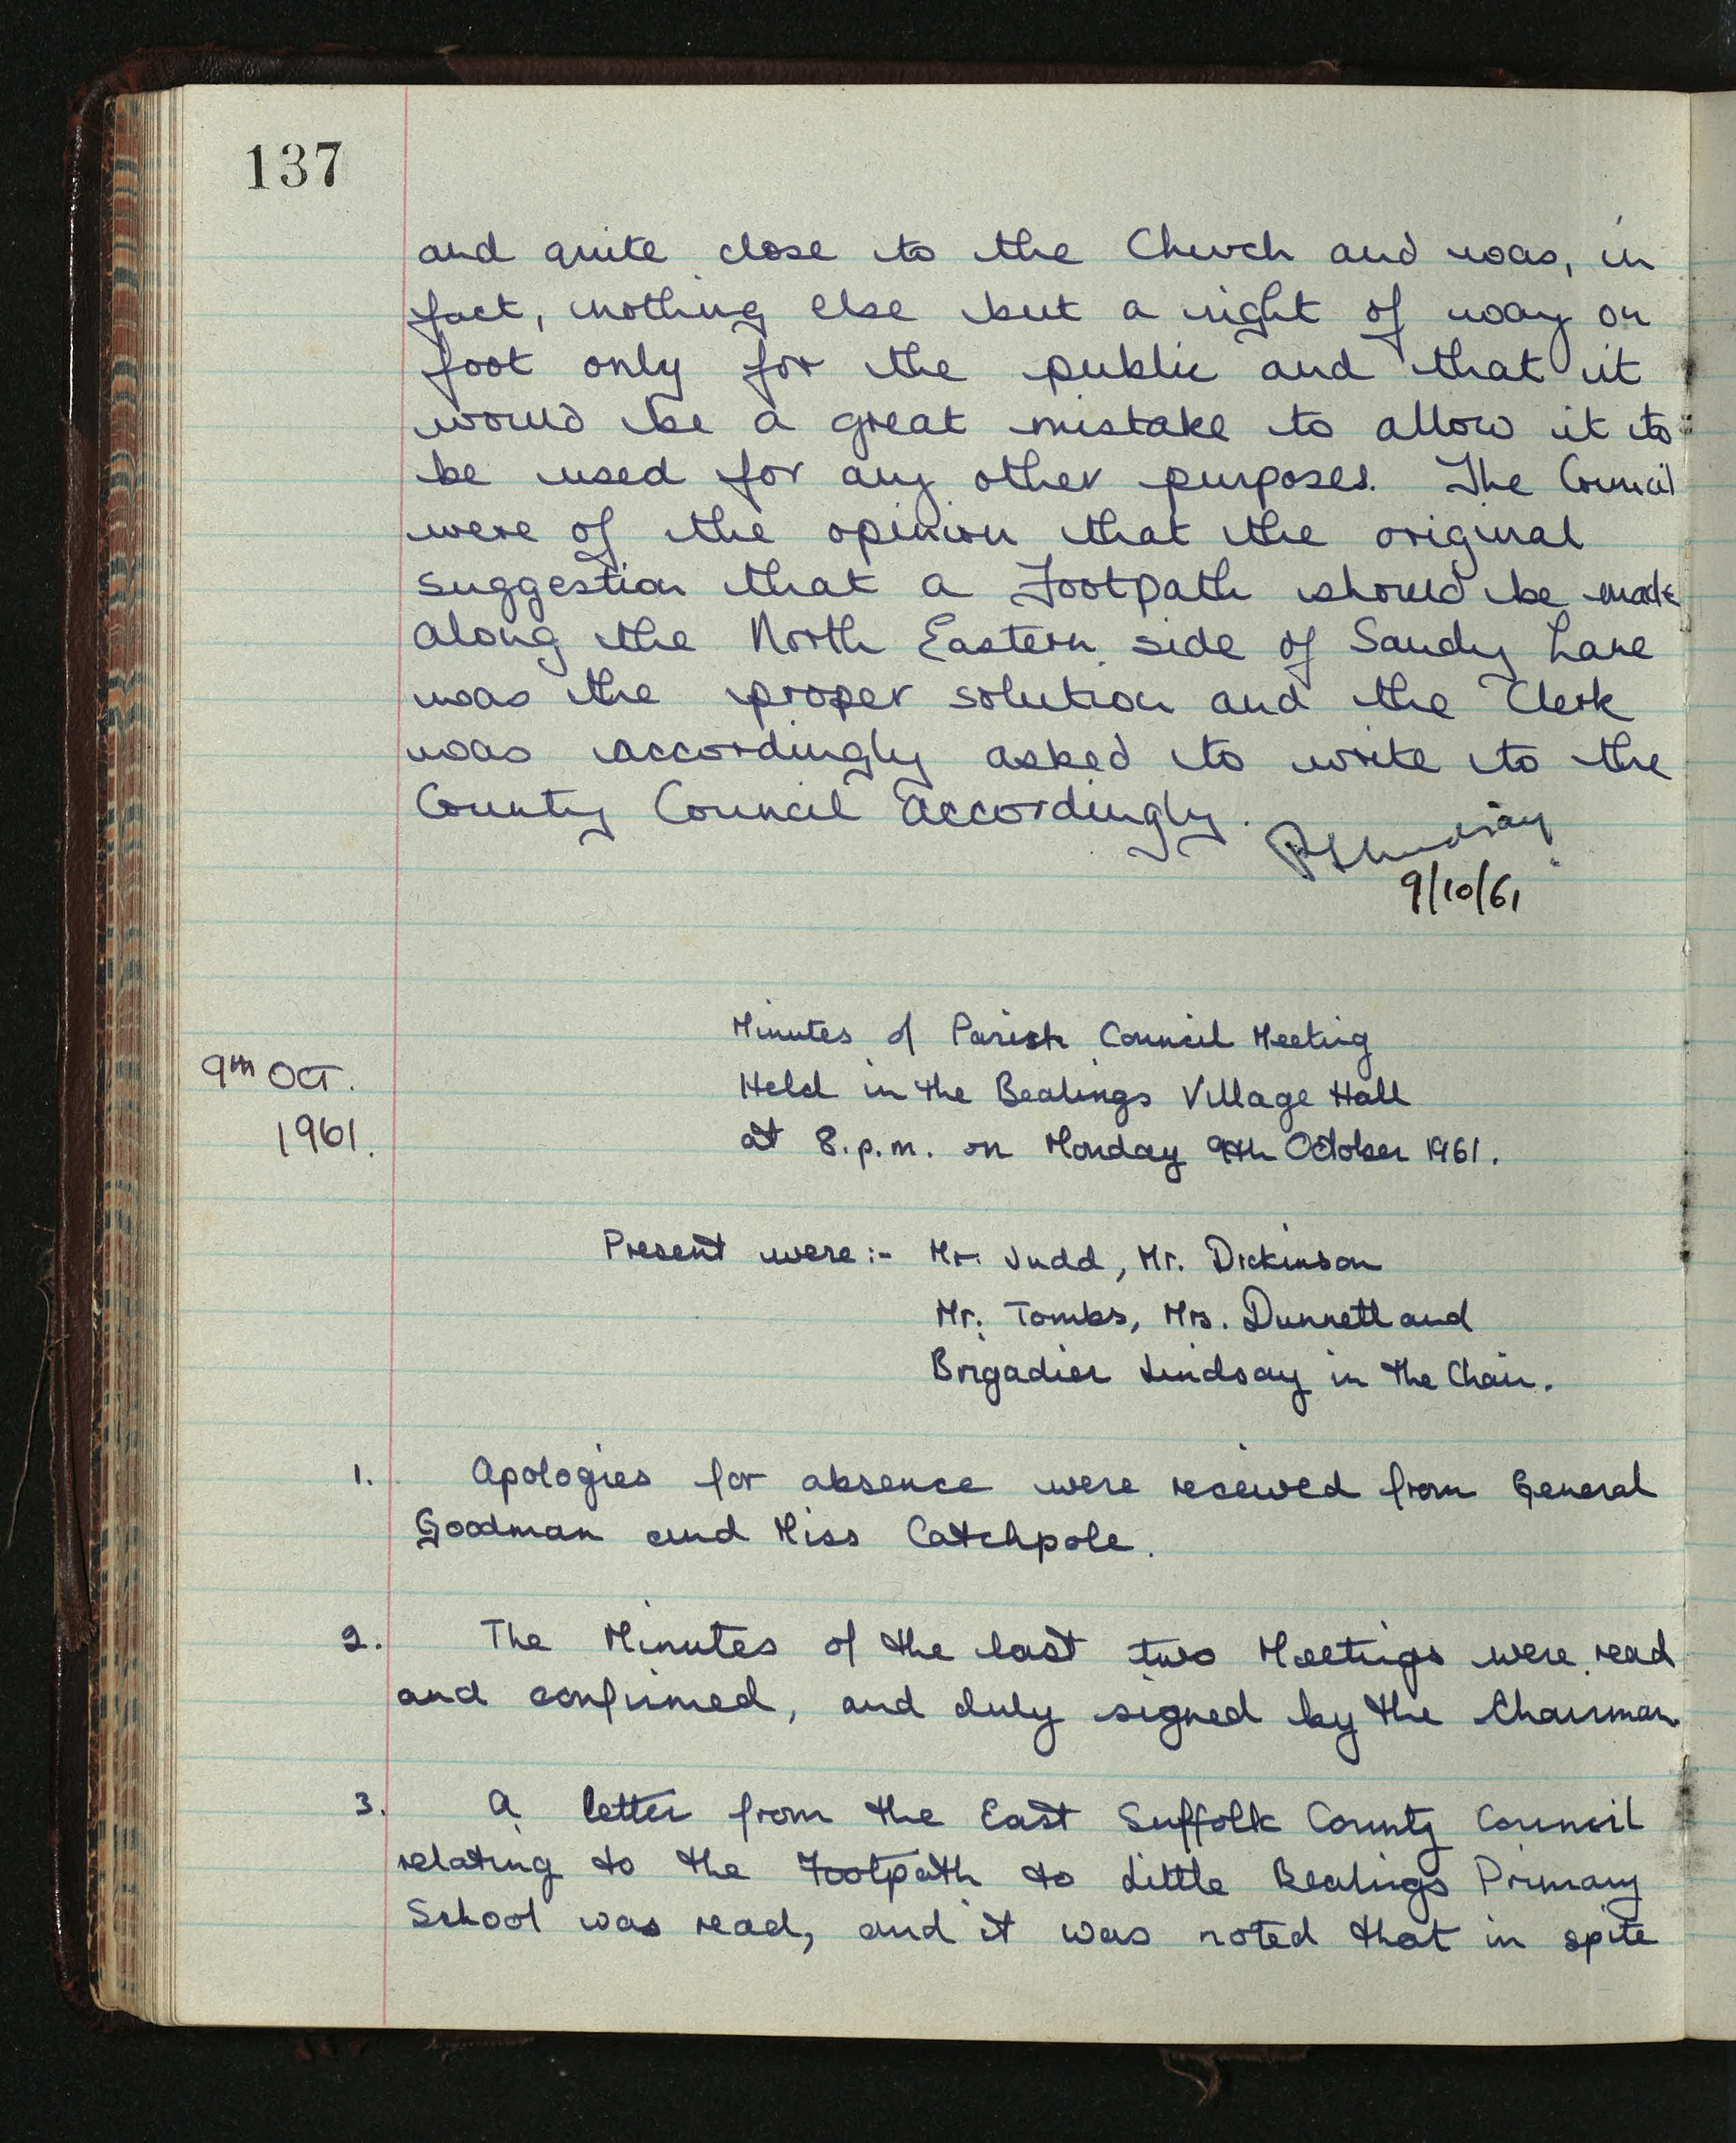 137
and quite close to the Church and was, in
fact, nothing else but a right of way on
foot only for the public and that it
would be a great mistake to allow it to
be used for any other purposes. The Council
were of the opinion that the original
suggestion that a Footpath should be made
along the North Eastern side of Sandy Lane
was the proper solution and the Clerk
was accordingly asked to write to the
County Council accordingly.
Lindsay
9/10/61
9th OCT.
1961.
Minutes of Parish Council Meeting
Held in the Bealings Village Hall
at 8.p.m. on Monday 9th October 1961.
Present were :- Mr. Judd, Mr. Dickinson
Mr. Tombs, Mrs. Dunnett and
Brigadier Lindsay in the Chair.
1. Apologies for absence were received from General
Goodman and Miss Catchpole.
2. The Minutes of the last two Meetings were read
and confirmed, and duly signed by the Chairman.
3. A letter from the East Suffolk County Council
relating to the Footpath to Little Bealings Primary
School was read, and it was noted that in spite